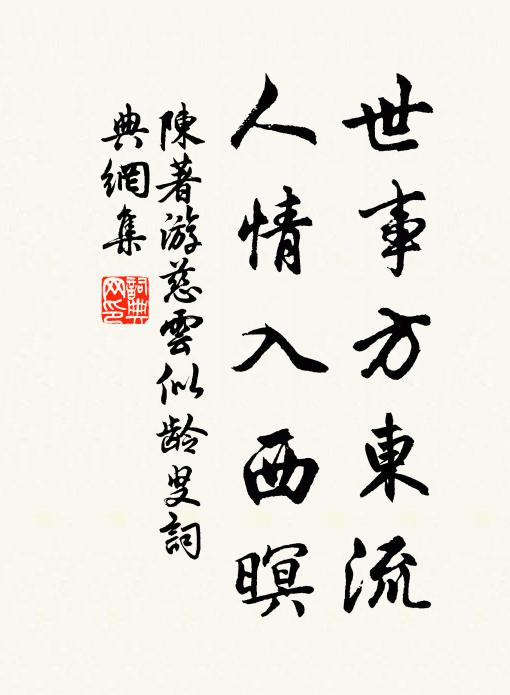 世事方東流
人情入西暝
陳著游慈雲似齡叟詞
典網集
詞典网印